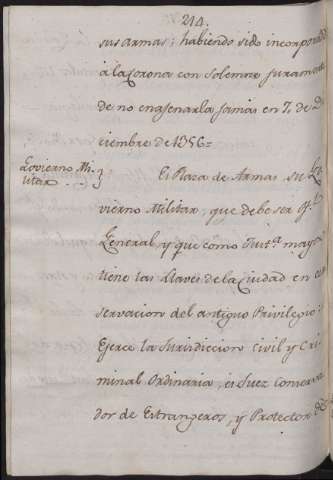 214.
sus armas; habiendo sido incorporada
à la Corona con Solemne Juramento
de no enagenarla jamas en 7, de D
iciembre de 1356=
Govierno Mi-
litar . . }
Es Plaza de Armas su Go
vierno Militar, que debe ser
General, y que como Just.ª mayor
tiene las Llaves de la Ciudad en
servacion del antiguo Privilegio:
Exerce la Jurisdiccion Civil y Cri
minal Ordinaria, es Juez Conserva
dor de Estrangeros, y Protector